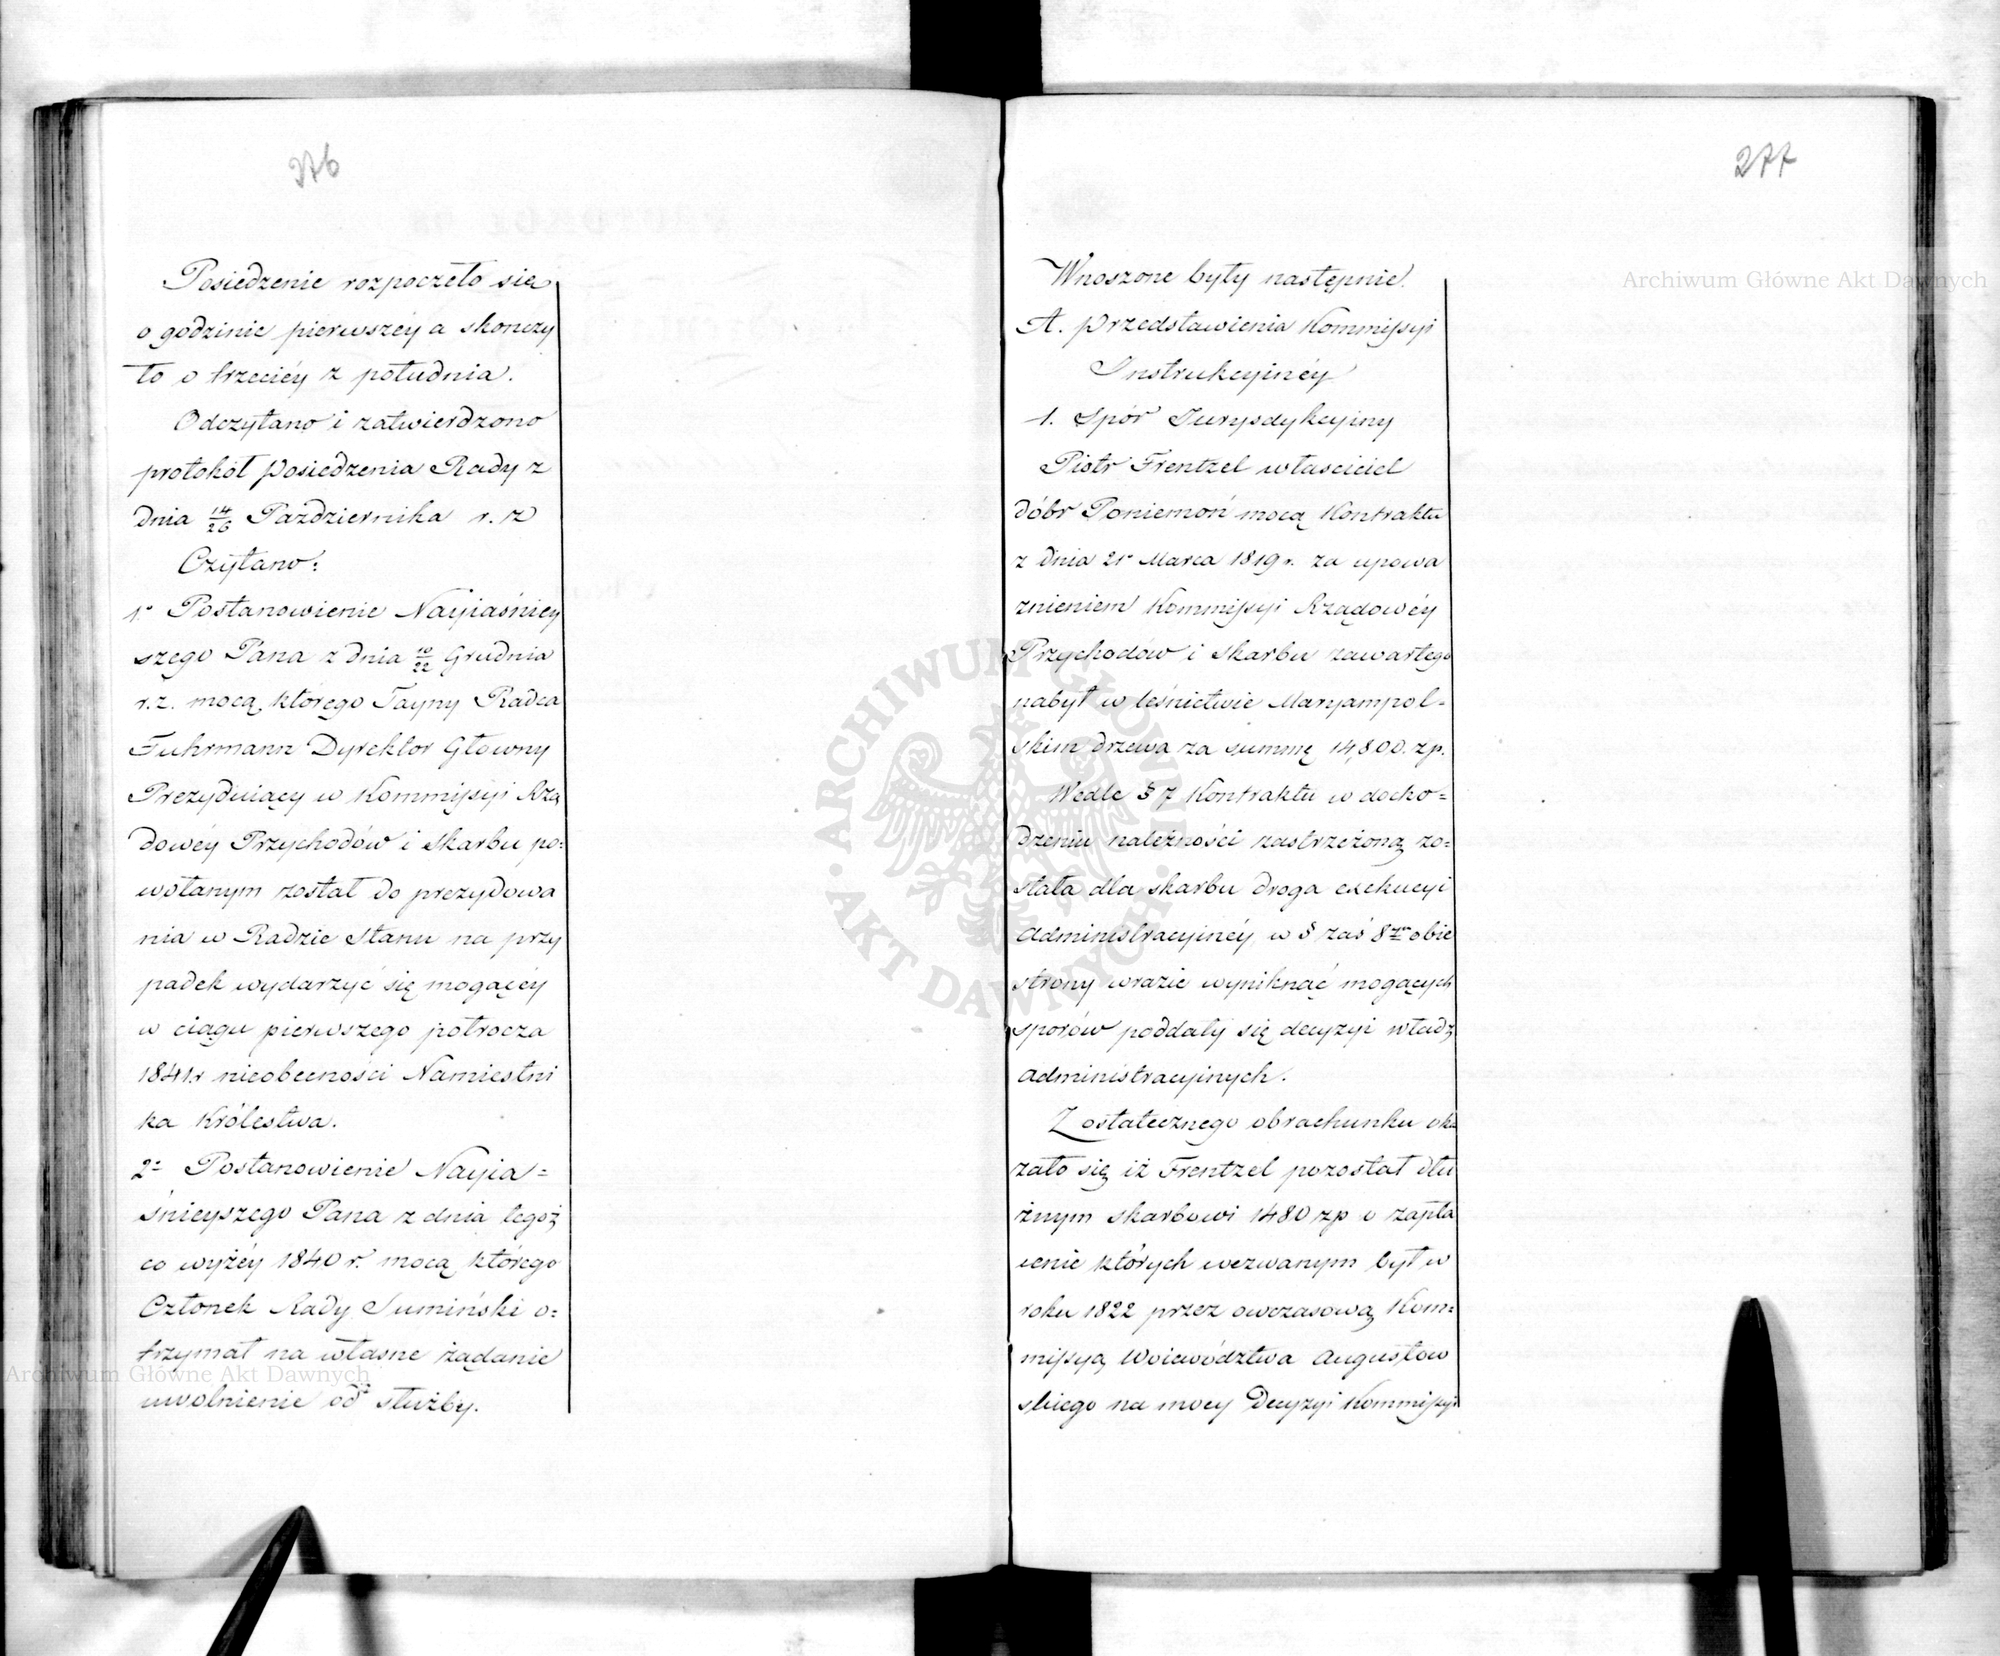 276
Posiedzenie rozpoczęło się
o godzinie pierwszéy a skonczy
ło o trzeciéy z południa.
Odczytano i zatwierdzono
protokół Posiedzenia Rady z
dnia 14/26 Października r. z
Czytano:
1o Postanowienie Nayiaśniey
szego Pana z dnia 10/22 Grudnia
r. z. mocą którego Tayny Radca
Fuhrmann Dyrektor Główny
Prezyduiący w Kommissyi Rzą
dowéy Przychodów i Skarbu po=
wołanym został do prezydowa
nia w Radzie Stanu na przy
padek wydarzyć się mogącéy
w ciągu pierwszego półrocza
1841 r nieobecności Namiestni
ka Królestwa.
2o Postanowienie Nayia=
śnieyszego Pana z dnia tegoż
co wyżéy 1840 r. mocą którego
Członek Rady Sumiński o=
trzymał na własne żądanie
uwolnienie od służby.
277
Wnoszone były następnie.
A. Przedstawienia Kommissyi
Instrukcyinéy
1. Spór Jurysdykcyiny
Piotr Frentzel właściciel
dóbr Poniemoń mocą Kontraktu
z dnia 21o Marca 1819 r. za upowa
żnieniem Kommissyi Rządowéy
Przychodów i Skarbu zawartego
nabył w leśnictwie Maryampol=
skim drzewa za summę 14,800. zp.
Wedle § 7 Kontraktu w docho=
dzeniu należności zastrzeżoną zo=
stała dla skarbu droga exekucyi
Administracyinéy w § zaś 8ym obie
strony wrazie wyniknąć mogących
sporów poddały się decyzyi władz
Administracyinych.
Z ostatecznego obrachunku oka
zało się iż Frentzel pozostał dłu
żnym skarbowi 1480 zp o zapła
cenie których wezwanym był w
roku 1822 przez owczasową Kom=
missyą Woiewództwa Augustow
skiego na mocy Decyzyi Kommissyi
Archiwum Główne Akt Dawnych
Archiwum Główne Akt Dawnych
ARCHIWUM GŁÓWNE AKT DAWNYCH